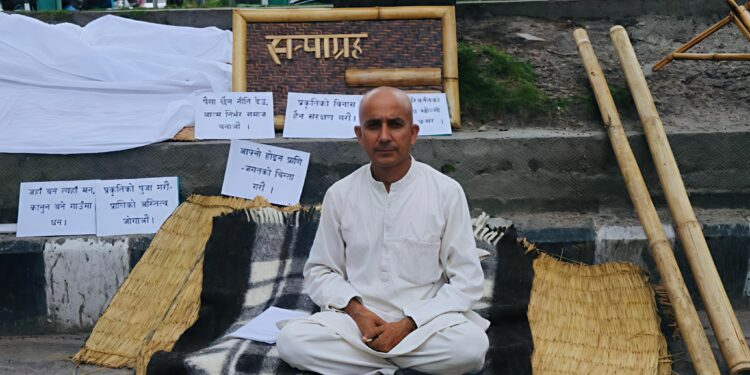 सत्याग्रह
पैसा हैन नीति देउ,
आत्म निर्भर समाज
बनाऔं ।
प्रकृतिको बिनास
हैन संरक्षण गरौं ।
आफ्नो होइन प्राणि
-जगतको चिन्ता
गरौं ।
जहाँ बन त्यहाँ मन,
कानुन बने गाउँमा
धन ।
प्रकृतिको पुजा गरौं
प्राणिको अस्तित्व
जोगाऔं ।